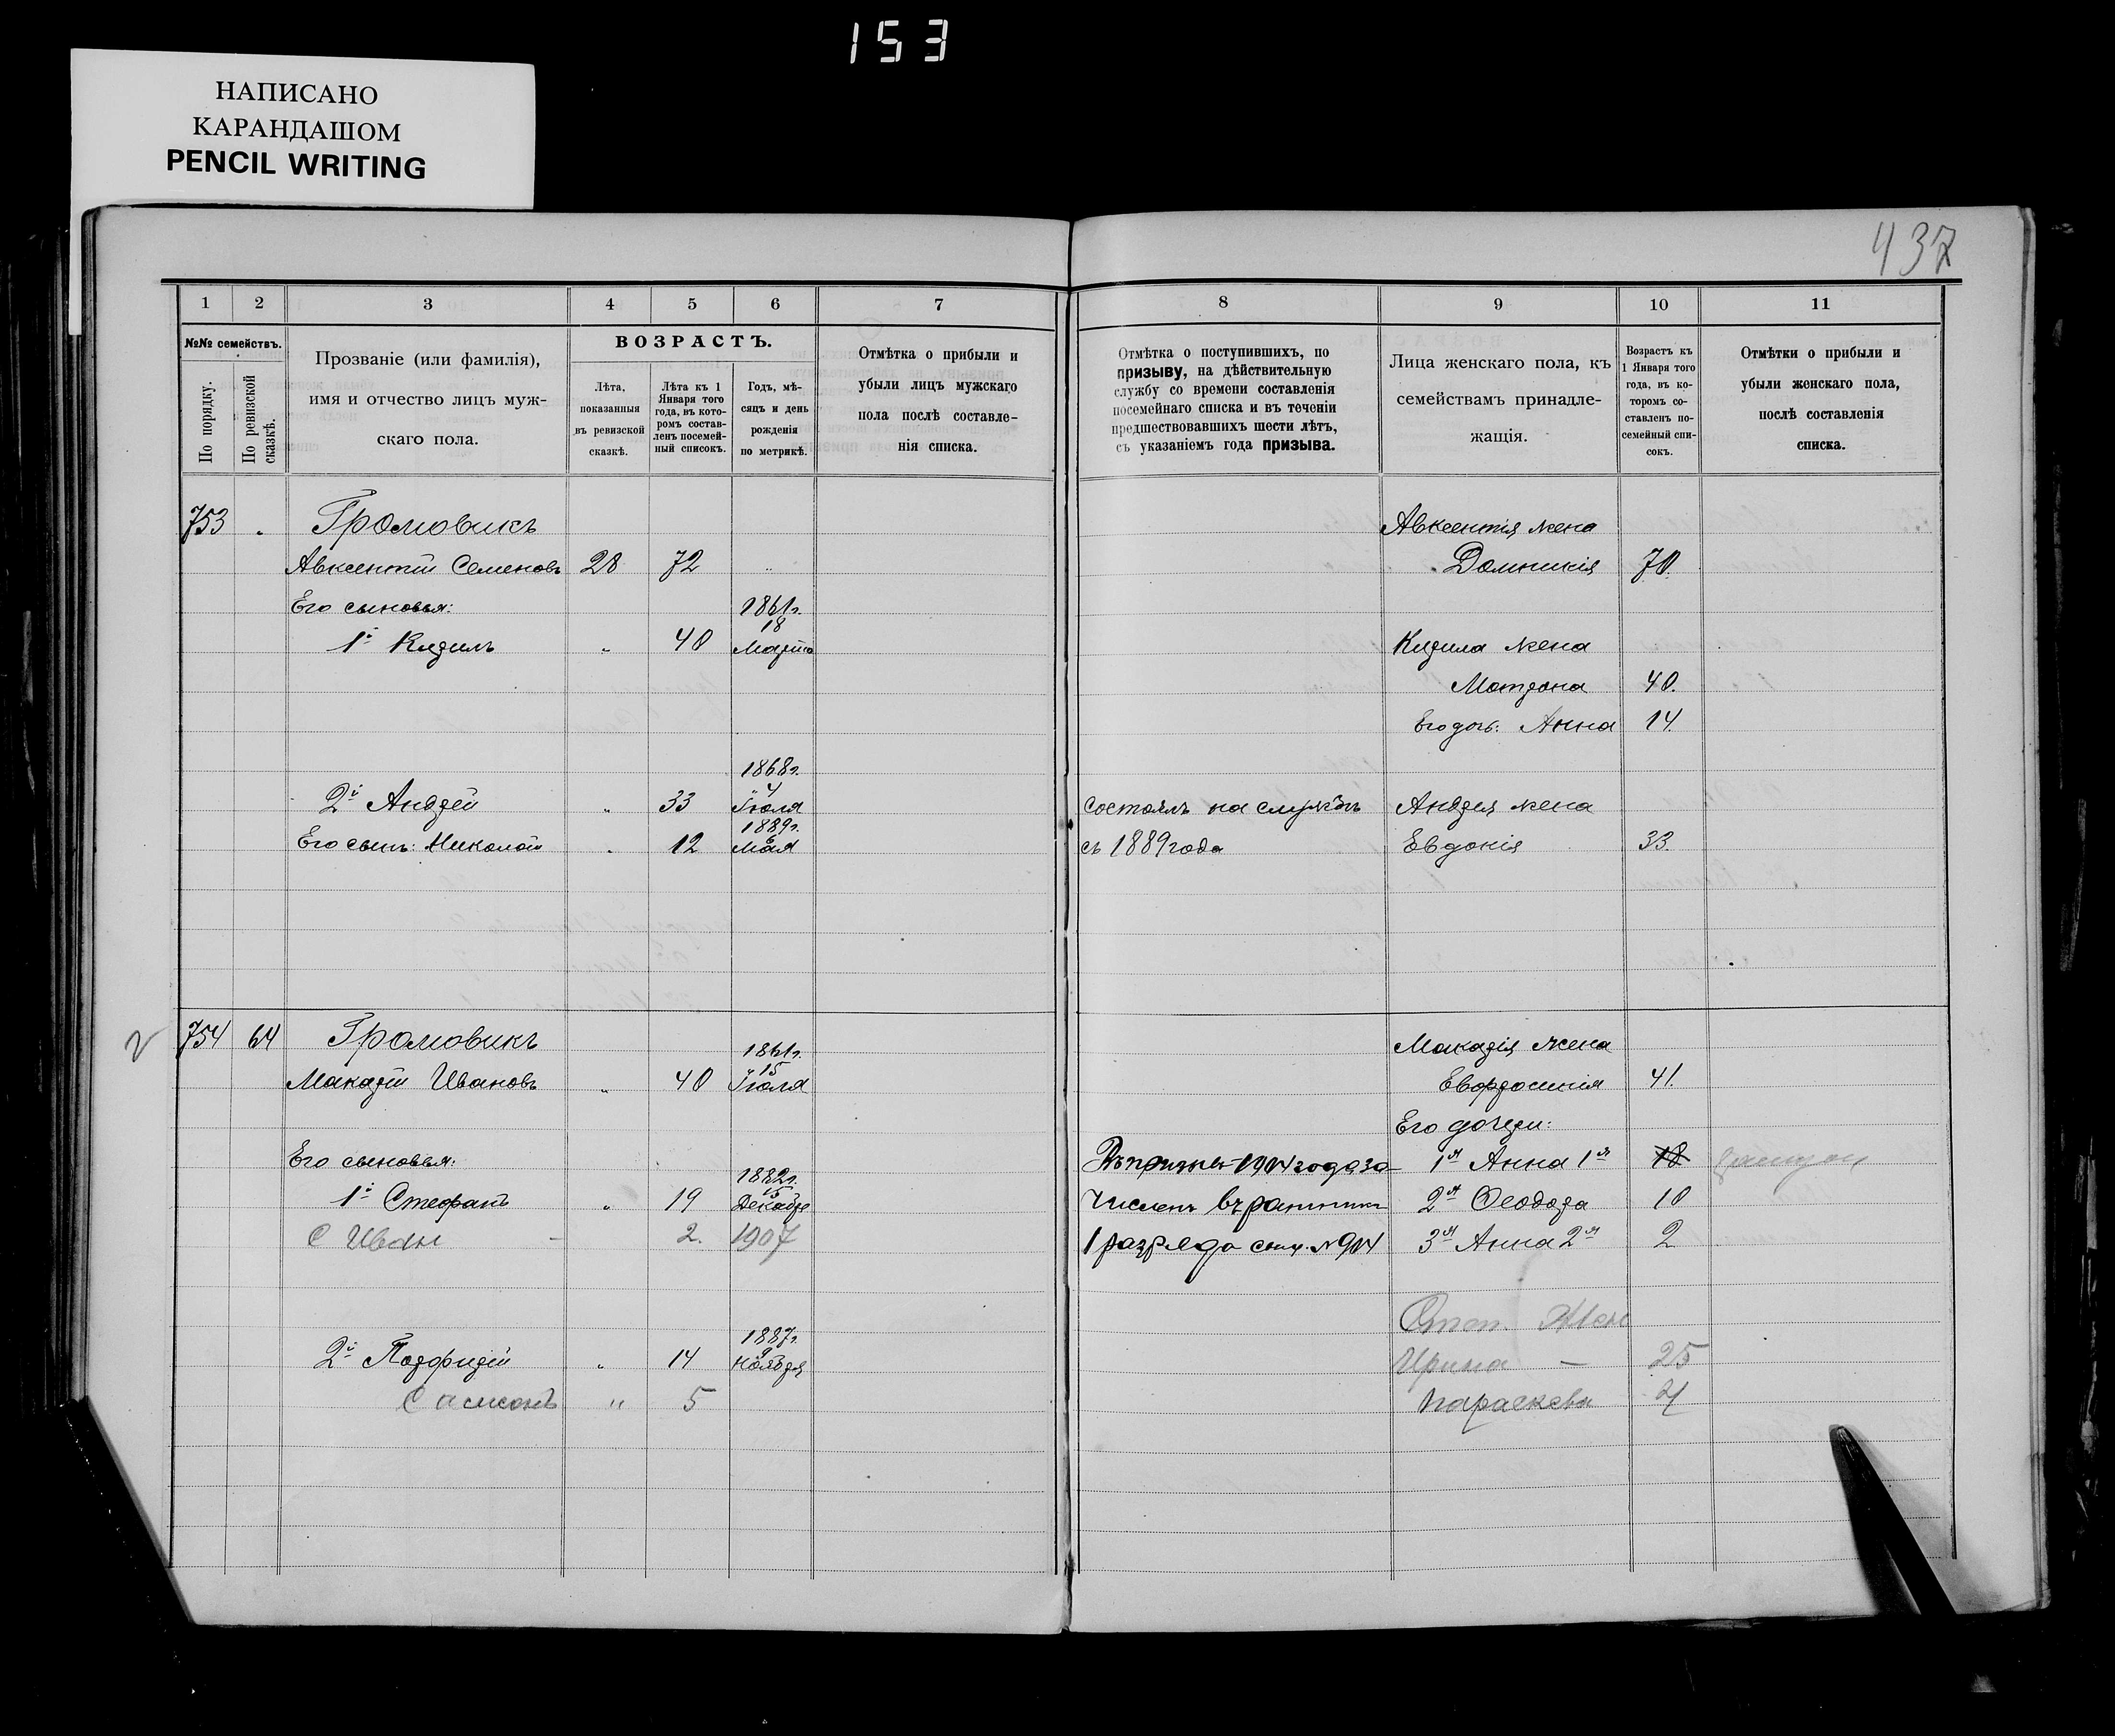 153
НАПИСАНО
КАРАНДАШОМ
PENCIL WRITING
437
1 2 3 4 5 6 7 8 9 10 11
№№ семействъ.
По порядку.
По ревизской сказкѣ.
Прозваніе (или фамилія),
имя и отчество лицъ муж-
скаго пола.
ВОЗРАСТЪ.
Лѣта,
показанныя
въ ревизской
сказкѣ.
Лѣта къ 1
Января того
года, въ кото-
ромъ состав-
ленъ посемей-
ный списокъ.
Годъ, мѣ-
сяцъ и день
рожденія
по метрикѣ.
Отмѣтка о прибыли и
убыли лицъ мужскаго
пола послѣ составле-
нія списка.
Отмѣтка о поступившихъ, по
призыву, на дѣйствительную
службу со времени составленія
посемейнаго списка и въ теченіи
предшествовавшихъ шести лѣтъ,
съ указаніемъ года призыва.
Лица женскаго пола, къ
семействамъ принадле-
жащія.
Возрастъ къ
1 Января того
года, въ ко-
торомъ со-
ставленъ по-
семейный спи-
сокъ.
Отмѣтки о прибыли и
убыли женскаго пола,
послѣ составленія
списка.
753 Громовикъ Авксентія жена
Авксентій Семеновъ 28 72 Домникія 70.
Его сыновья: 1861г.
18
1й Кирилъ 40 Марта Кирила жена
Матрона 40.
Его дочь: Анна 14.
1868г.
4
2й Андрей 33 Іюля состоялъ на службѣ Андрея жена
1889г.
Его сынъ: Николай 12 Мая съ 1889 года Евдокія 33.
754 64 Громовикъ Макарія жена
1861г.
15
Макарій Ивановъ 40 Іюля Евфросинія 41.
Его дочери:
Его сыновья: 1904 года за 1я Анна 1я 18
1882г.
15
1й Стефанъ 19 Декабря численъ въ ратники 2я Ѳеодора 10
С Иван 2. 1907 1 разряда № 904 3я Анна 2я 2
Степ. Жен
1887г.
9
2й Порфирій 14 Ноября Ирина — 25
Самсонъ 〃 5 Параскева 4